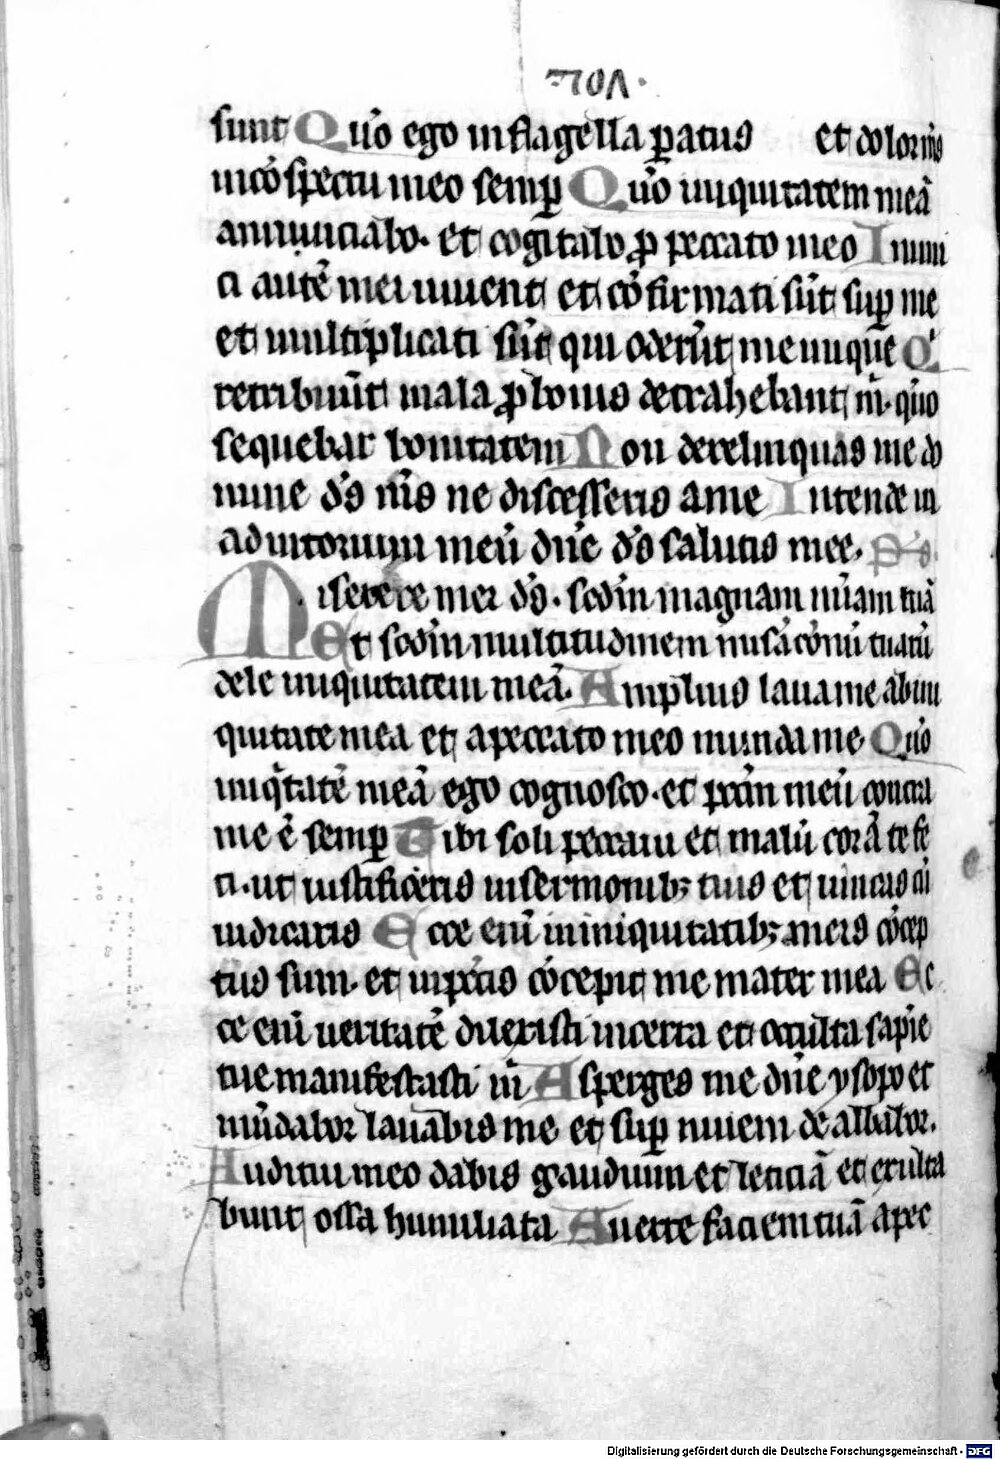 sunt Quō ego in flagella ꝑatus et dolor m̄s
in cōspectu meo semꝑ Quō iniquitatem meā
annunciabo. et cogitabo ꝓ peccato meo Inimi
ci autē mei uiuent et cōfirmati sūt suꝑ me
et multiplicati sūt qui oderūt me inique Qͥ
retribuūt mala ꝓ bonis detrahebant m̄. quō
sequebar bonitatem Non derelinquas me do
mine ds̄ ms̄ ne discesseris a me Intende in
adiutorium meū dn̄e ds̄ salutis mee. Ps̄.
Miserere mei ds̄. scdm̄ magnam mīam tuā
Et scdm̄ multitudinem misācōnū tuarū
dele iniquitatem meā. Amplius laua me ab ini
quitate mea et a peccato meo munda me Quō
iniqͥtatē meā ego cognosco. et pccm̄ meū contra
me ē semꝑ Tibi soli peccaui et malū corā te fe
ci. ut iustificeris in sermonibꝫ tuis et uincas cū
iudicaris Ecce enī in iniquitatibꝫ meis cōcep
tus sum. et in pctīs cōcepit me mater mea Ec
ce enī ueritatē dilexisti incerta et occulta sapīe
tue manifestasti m̄ Asperges me dn̄e ysopo et
mūdabor lauabis me et suꝑ niuem dealbabor.
Auditui meo dabis gaudium et leticiā et exulta
bunt ossa humiliata Auerte faciem tuā a pec
Digitalisierung gefördert durch die Deutsche Forschungsgemeinschaft - DFG